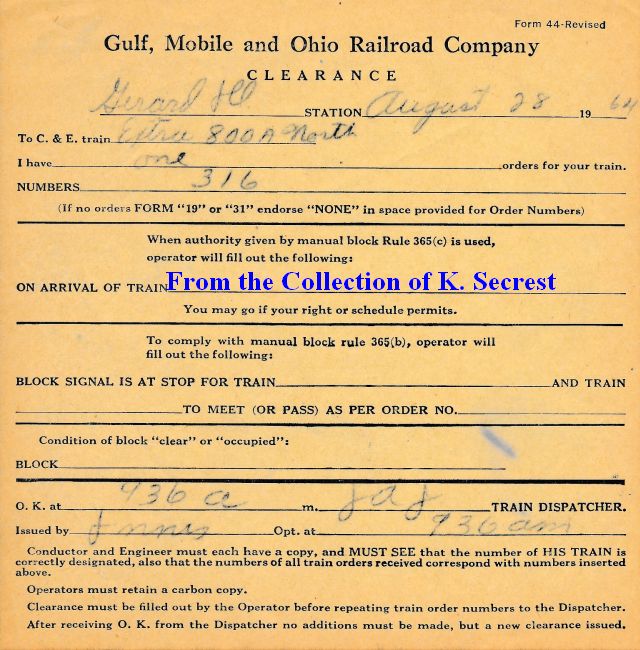 Form 44-Revised
Gulf, Mobile and Ohio Railroad Company
CLEARANCE
Gerard Ill STATION August 28 1964
To C. & E. train Extra 800A North
I have one orders for your train.
NUMBERS 316
(If no orders FORM "19" or "31" endorse "NONE" in space provided for Order Numbers)
When authority given by manual block Rule 365(c) is used,
operator will fill out the following:
ON ARRIVAL OF TRAIN From the Collection of K. Secrest
You may go if your right or schedule permits.
To comply with manual block rule 365(b), operator will
fill out the following:
BLOCK SIGNAL IS AT STOP FOR TRAIN AND TRAIN
TO MEET (OR PASS) AS PER ORDER NO.
Condition of block "clear" or "occupied":
BLOCK
O. K. at 936 a m. J A J TRAIN DISPATCHER.
Issued by Opt. at 936 am
Conductor and Engineer must each have a copy, and MUST SEE that the number of HIS TRAIN is
correctly designated, also that the numbers of all train orders received correspond with numbers inserted
above.
Operators must retain a carbon copy.
Clearance must be filled out by the Operator before repeating train order numbers to the Dispatcher.
After receiving O. K. from the Dispatcher no additions must be made, but a new clearance issued.